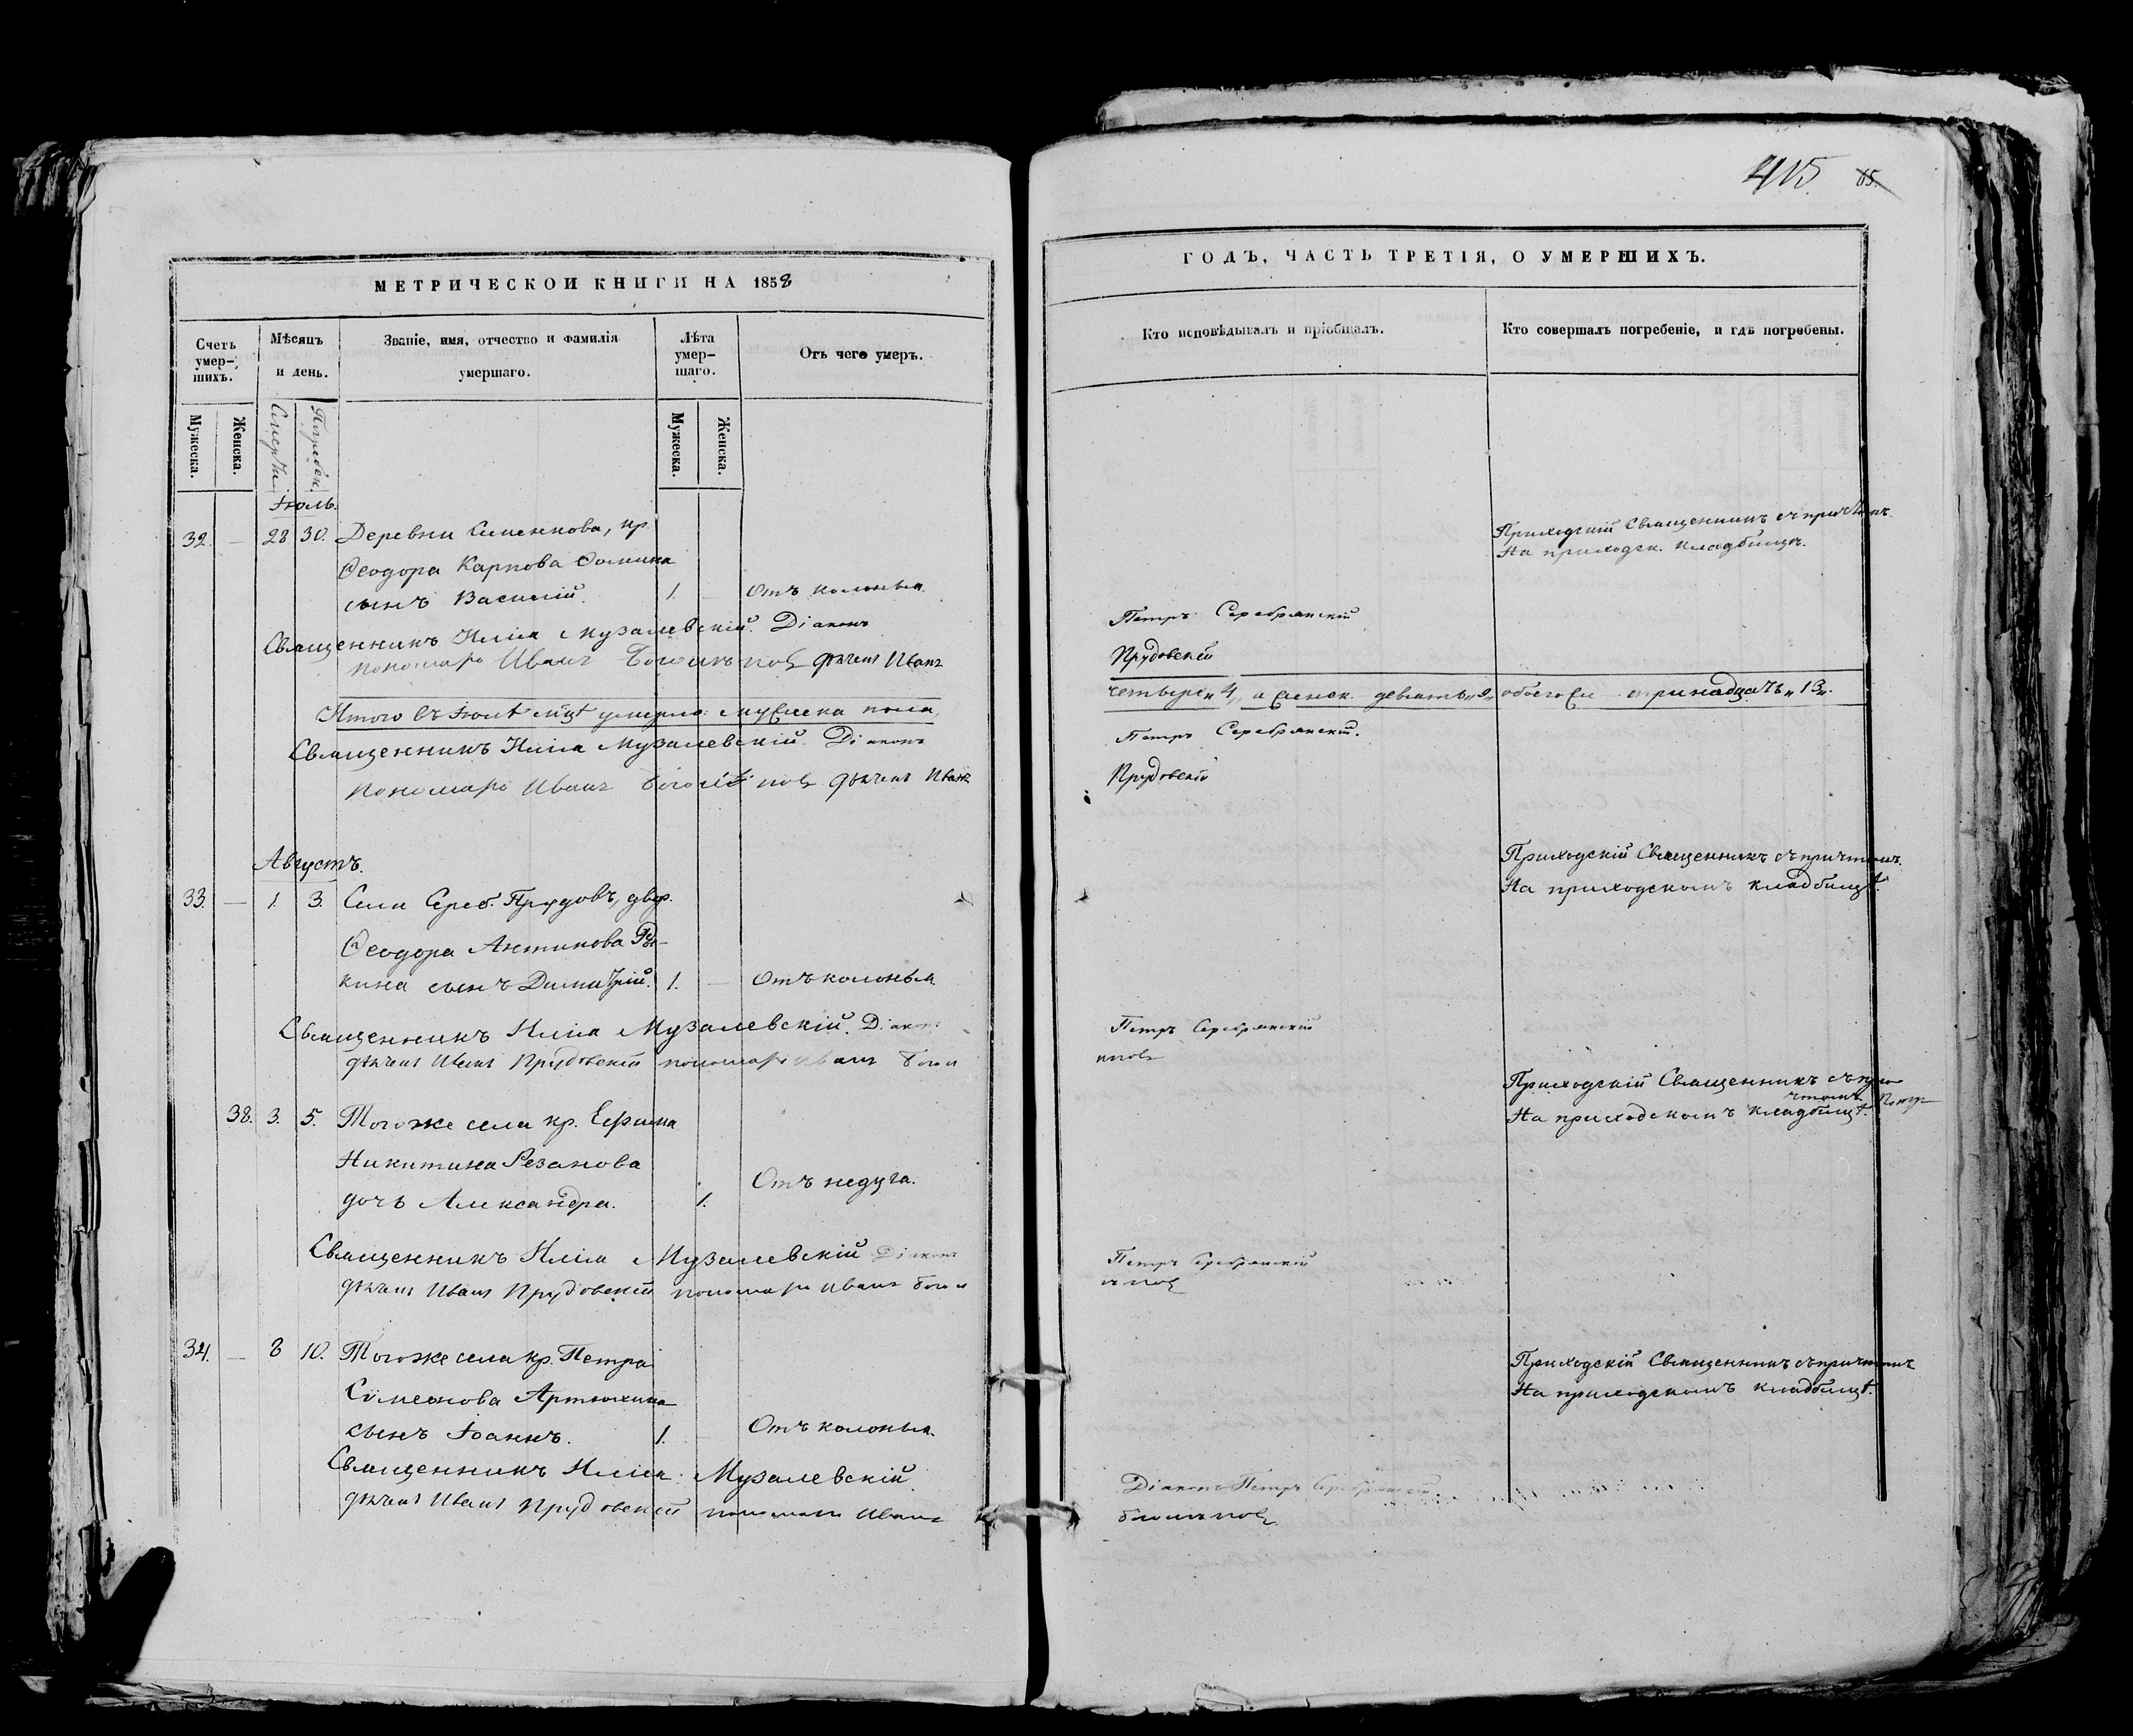 МЕТРИЧЕСКОЙ КНИГИ НА 1858
Счетъ умер-шихъ.
Мѣсяцъ и день.
Званіе, имя, отчество и фамилія умершаго.
Лѣта умер-шаго.
Отъ чего умеръ.
Мужеска.
Женска.
Смерти
Погребен.
Мужеска.
Женска.
Іюль.
32. — 28 30. Деревни Клиенкова, кр.
Ѳеодора Карпова Ѳомина
сынъ Василій. 1. — Отъ колотья.
Священникъ Илія Музалевскій. Діаконъ
пономарь Иванъ дьячекъ Иванъ
Итого въ Іюлѣ м҃цѣ умерло: мужеска пола,
Священникъ Илія Музалевскій. Діаконъ
пономарь Иванъ дьячекъ Иванъ
Августъ.
33. — 1. 3. Села Сереб. Прудовъ, двор.
Ѳеодора Антипова
кина сынъ Димитрій. 1. — Отъ колотья
Священникъ Илія Музалевскій. Діаконъ
дьячекъ Иванъ Прудовскій пономарь Иванъ
38. 3. 5. Тогоже села кр. Ефима
Никитина Резанова
дочь Александра. 1. Отъ недуга.
Священникъ Илія Музалевскій Діаконъ
дьячекъ Иванъ Прудовскій пономарь Иванъ
34. — 8 10. Тогоже села кр. Петра
Симеонова Артюхина
сынъ Іоаннъ. 1. Отъ колотья.
Священникъ Илія Музалевскій.
дьячекъ Иванъ Прудовскій пономарь Иванъ
415. 65.
ГОДЪ, ЧАСТЬ ТРЕТІЯ, О УМЕРШИХЪ.
Кто исповѣдывалъ и пріобщалъ.
Кто совершалъ погребеніе, и гдѣ погребены.
Приходскій Священникъ съ причтомъ.
На приходск. кладбищѣ.
Петръ Серебрянскій
Прудовскій
четыре „4„ а женск. девять „9„ обоего же тринадцать „13„.
Петръ Серебрянскій.
Прудовскій
Приходскій Священникъ съ причтомъ.
На приходскомъ кладбищѣ.
Петръ Серебрянскій
Приходскій Священникъ съ при-
чтомъ
На приходскомъ кладбищѣ.
Петръ Серебрянскій
Приходскій Священникъ съ причтомъ
На приходскомъ кладбищѣ.
Діаконъ Петръ Серебрянскій